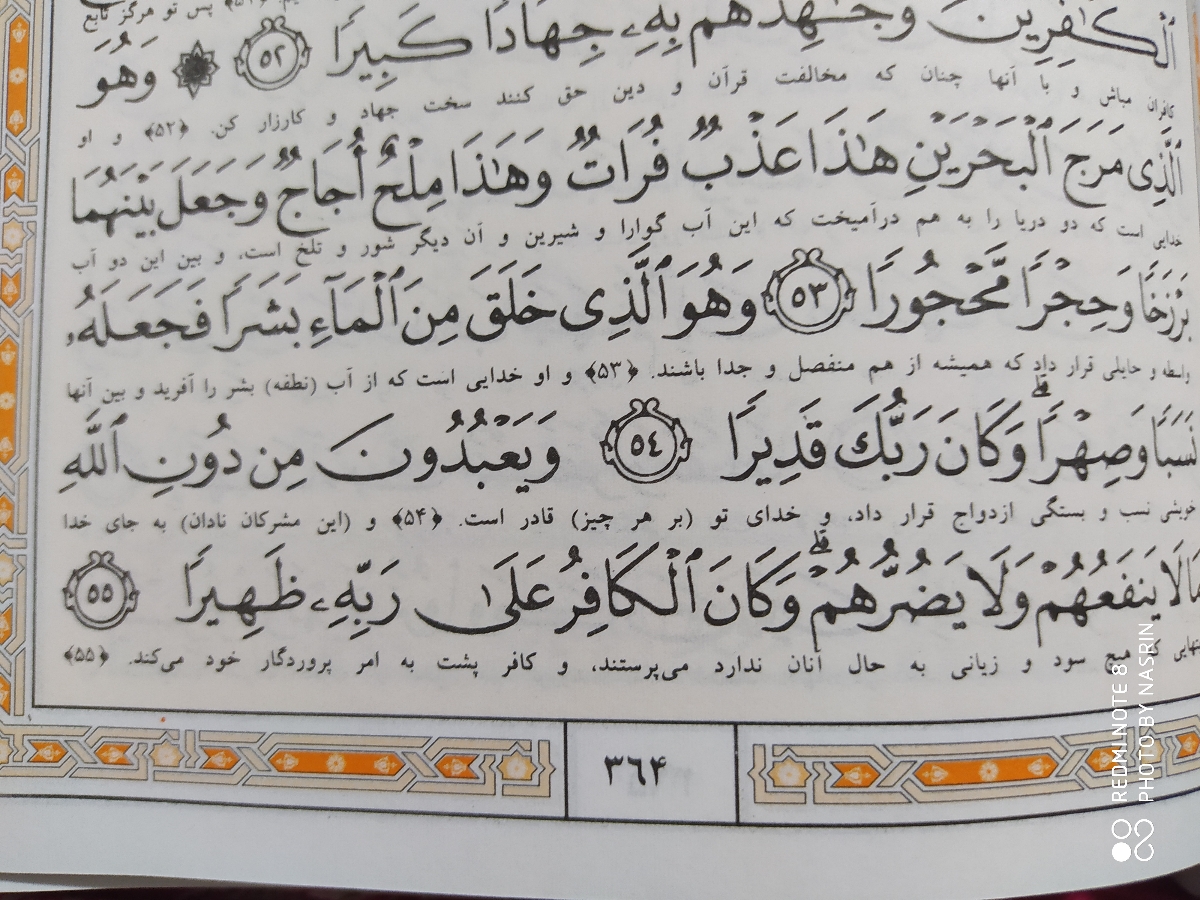 پس تو هرگز تابع
ٱلْكَـٰفِرِينَ وَجَـٰهِدْهُم بِهِۦ جِهَادًا كَبِيرًا ۝٥٢ ۞ وَهُوَ
کافران مباش و با آنها چنان که مخالفت قرآن و دین حق کنند سخت جهاد و کارزار کن. ﴿۵۲﴾ و او
ٱلَّذِى مَرَجَ ٱلْبَحْرَيْنِ هَـٰذَا عَذْبٌ فُرَاتٌ وَهَـٰذَا مِلْحٌ أُجَاجٌ وَجَعَلَ بَيْنَهُمَا
خدایی است که دو دریا را به هم درآمیخت که این آب گوارا و شیرین و آن دیگر شور و تلخ است، و بین این دو آب
بَرْزَخًا وَحِجْرًا مَّحْجُورًا ۝٥٣ وَهُوَ ٱلَّذِى خَلَقَ مِنَ ٱلْمَآءِ بَشَرًا فَجَعَلَهُۥ
واسطه و حایلی قرار داد که همیشه از هم منفصل و جدا باشند. ﴿۵۳﴾ و او خدایی است که از آب (نطفه) بشر را آفرید و بین آنها
نَسَبًا وَصِهْرًا ۗ وَكَانَ رَبُّكَ قَدِيرًا ۝٥٤ وَيَعْبُدُونَ مِن دُونِ ٱللَّهِ
خویشی نسب و بستگی ازدواج قرار داد، و خدای تو (بر هر چیز) قادر است. ﴿۵۴﴾ و (این مشرکان نادان) به جای خدا
مَا لَا يَنفَعُهُمْ وَلَا يَضُرُّهُمْ ۗ وَكَانَ ٱلْكَافِرُ عَلَىٰ رَبِّهِۦ ظَهِيرًا ۝٥٥
هیچ سود و زیانی به حال آنان ندارد می‌پرستند، و کافر پشت به امر پروردگار خود می‌کند. ﴿۵۵﴾
۳۶۴
REDMI NOTE 8
PHOTO BY NASRIN